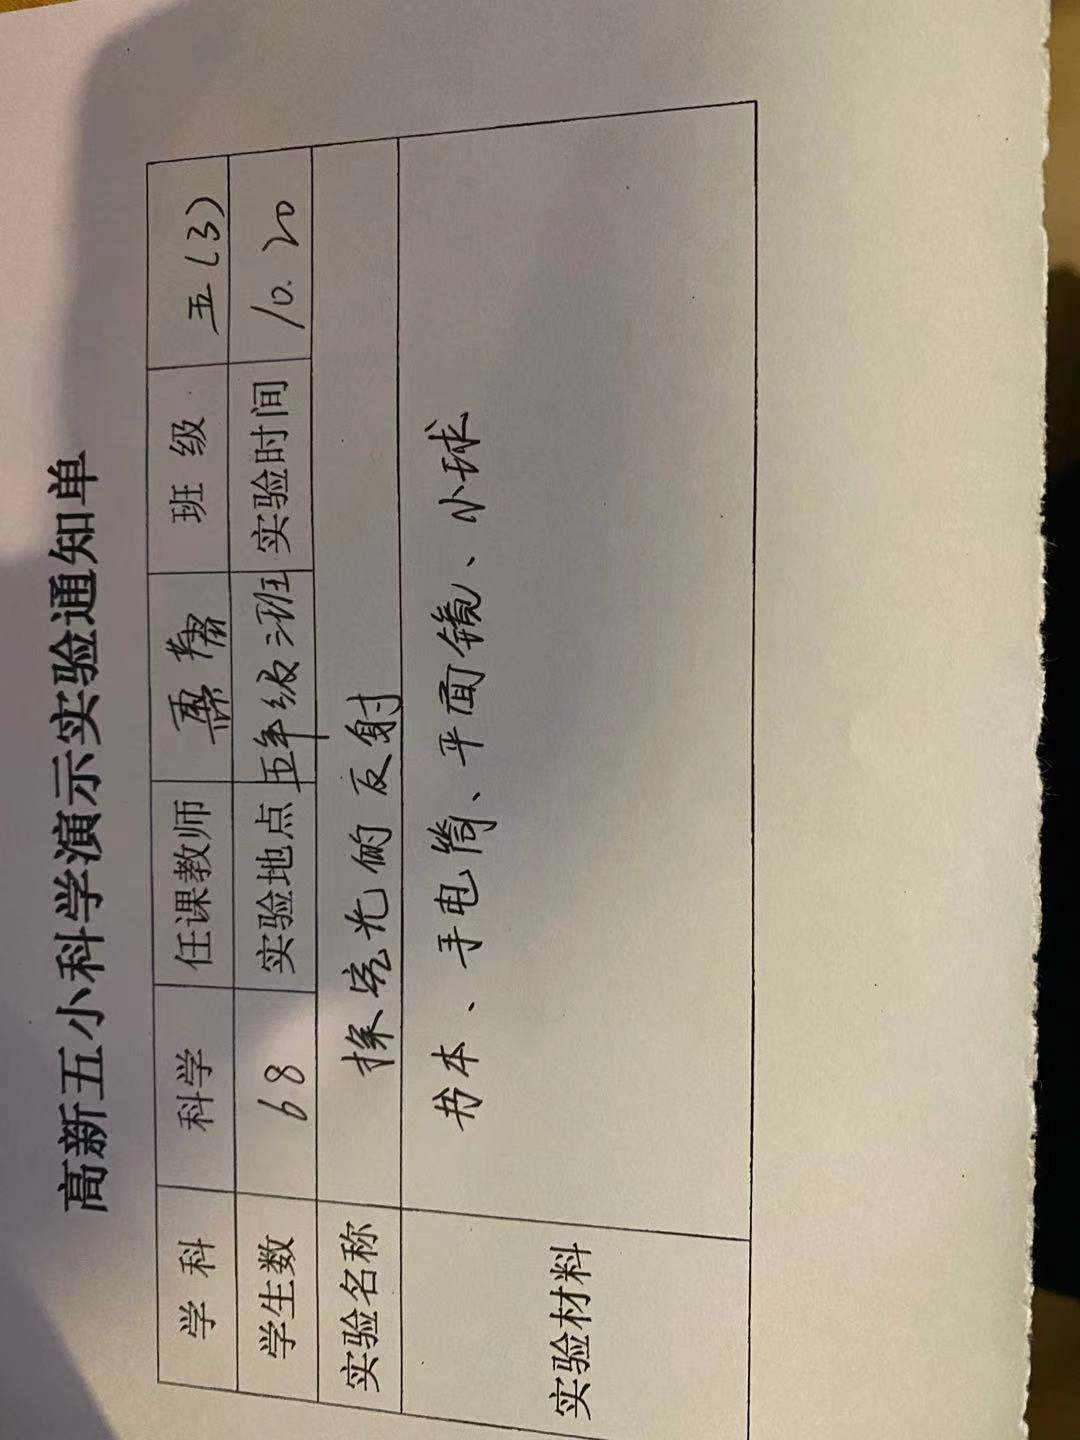 高新五小科学演示实验通知单
学 科 科学 任课教师 班 级 五(3)
学生数 68 实验地点 五年级三班 实验时间 10.20
实验名称 探究光的反射
实验材料 书本、手电筒、平面镜、小球